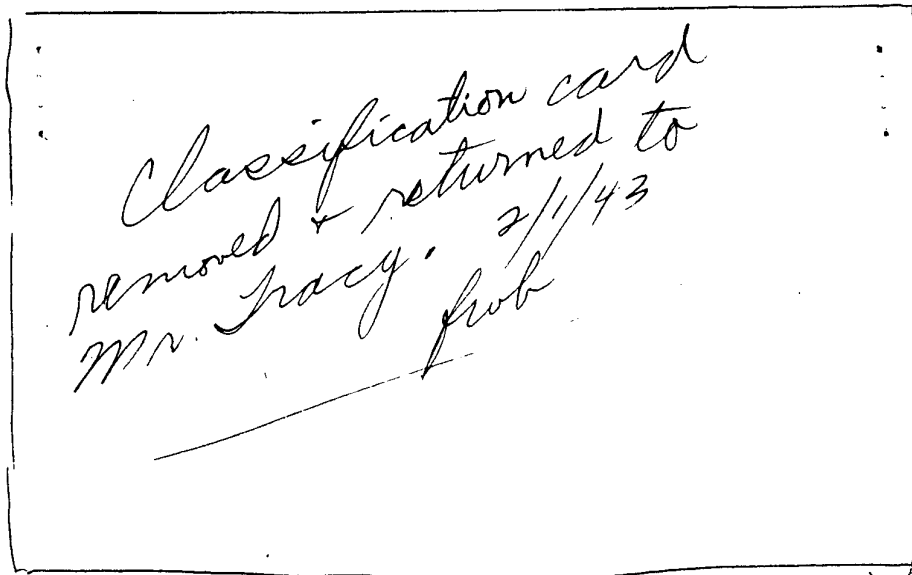 Classification card
removed & returned to
Mr. Tracy. 2/1/43